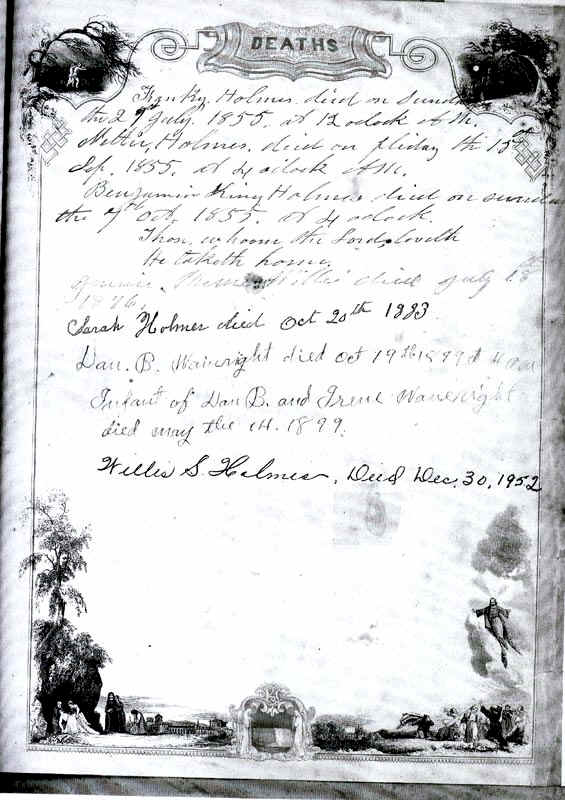 DEATHS
Holmes died on Sund
the 29 July 1855. at 12 oclock A M.
Holmes. died on friday the 15th
Sep. 1855. at 4 oclock A M.
Benjamin King Holmes died on sunda
the 7th Oct. 1855. at 4 oclock.
Thos. whoom the Lord loveth
He taketh home.
Willis died July 18th
1876.
Sarah Holmes died Oct 20th 1883
Dan. B. Wainwright died Oct 19th 1899 at 4
Infant of Dan B. and Irene Wainwright
died may the 14. 1899.
Willis S Holmes, Died Dec. 30, 1952